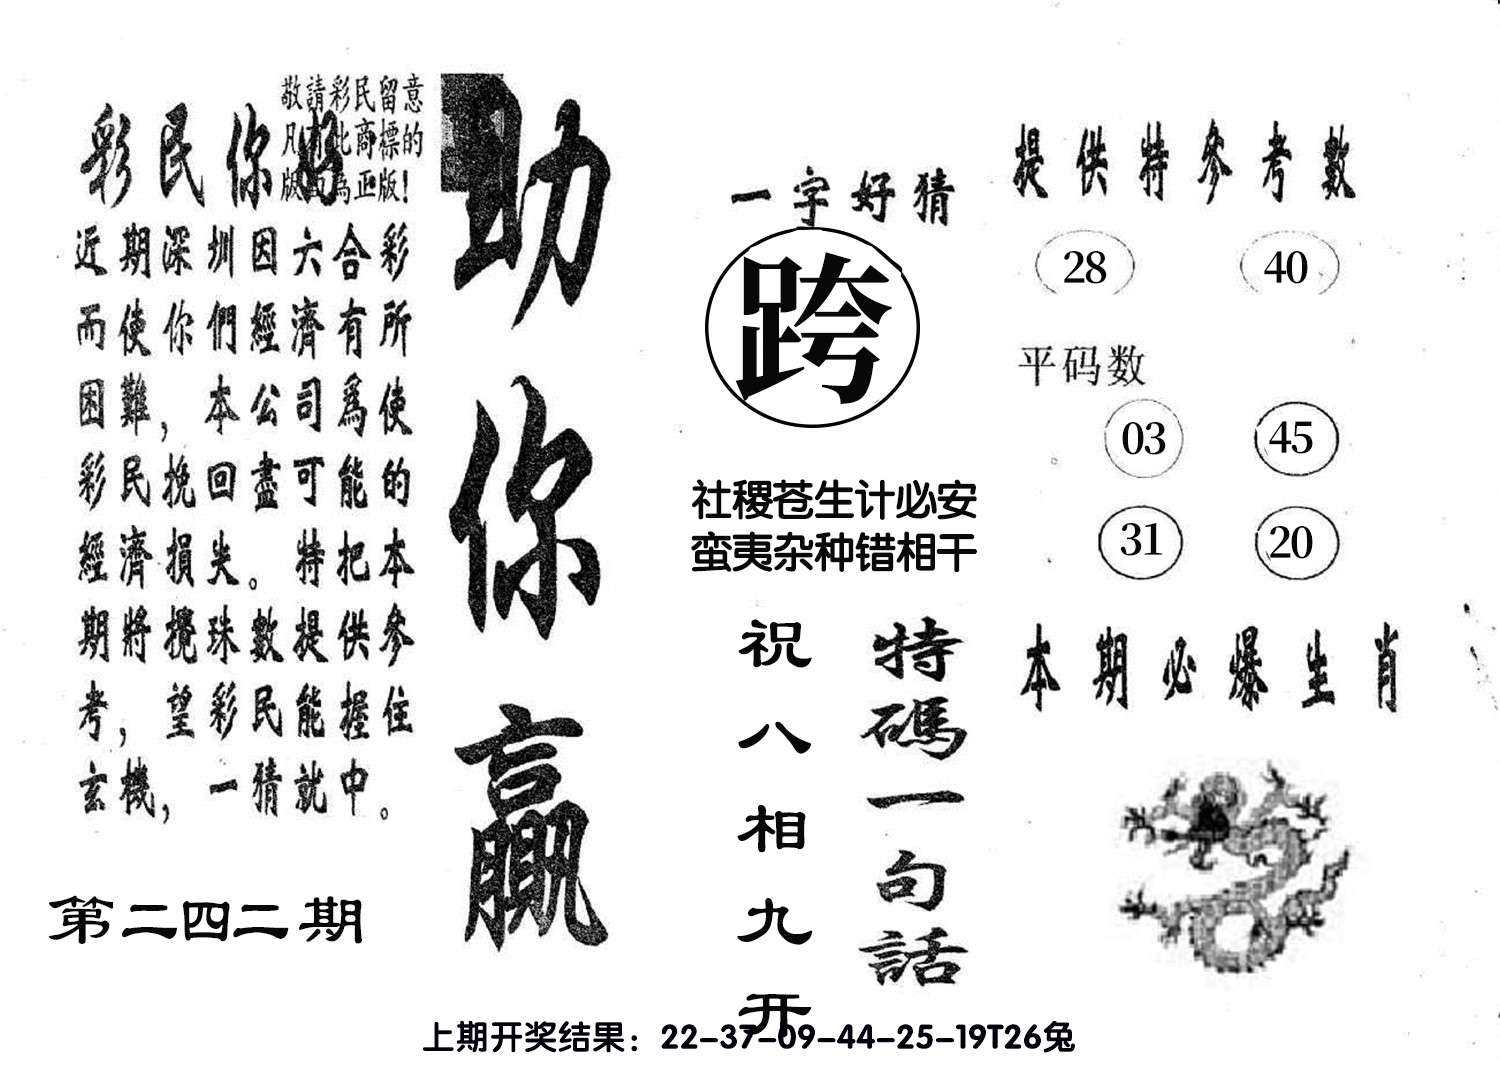 敬請彩民留意
凡有此商標的
版面為正版!
彩民你好
近期深圳因六合彩
而使你們經濟有所
困難，本公司爲使
彩民挽回盡可能的
經濟損失。特把本
期將攪珠數提供參
考，望彩民能握住
玄機，一猜就中。
第二四二期
助你贏
一字好猜
跨
社稷苍生计必安
蛮夷杂种错相干
特碼一句話
祝八相九开
提供特參考數
28 40
平码数
03 45
31 20
本期必爆生肖
上期开奖结果：22-37-09-44-25-19T26兔